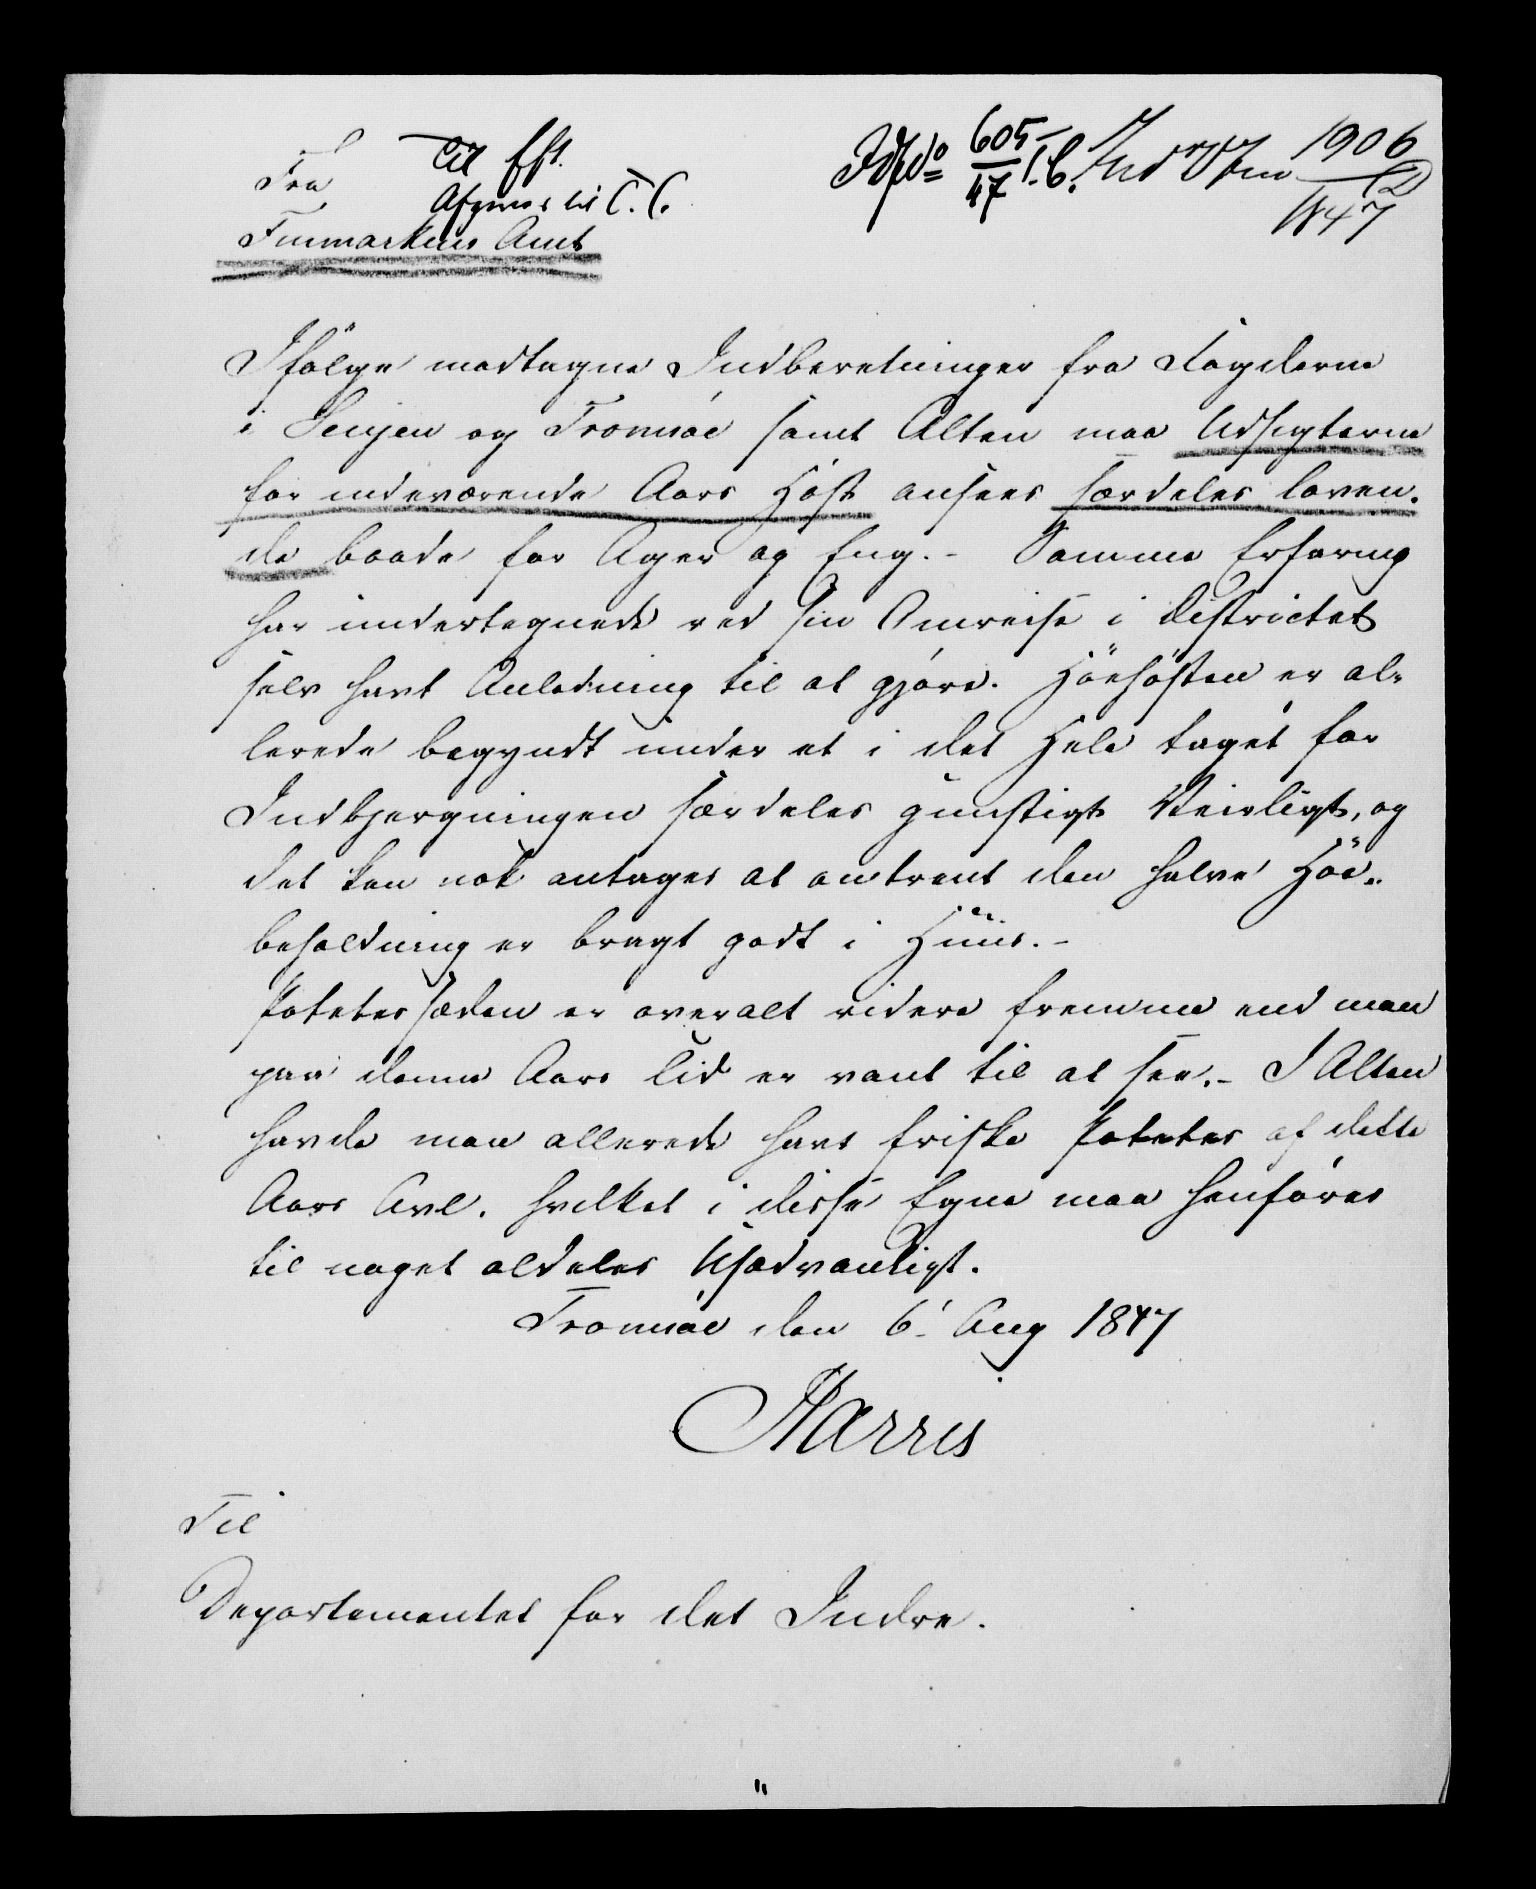 Fra
Finmarkens Amt
Til Eft.
Afgives til T. C.
605
47 T. C.
1906
1847
Ifølge modtagne Indberetninger fra Fogderne
i Senjen og Tromsøe samt Alten maa Udsigterne
for indeværende Aars Høst ansees særdeles loven-
de baade for Ager og Eng. - Samme Erfaring
har undertegnede ved sin Omreise i Districtet
selv havt Anledning til at gjøre. Høehøsten er al-
lerede begyndt under et i det Hele taget for
Indbjergningen særdeles gunstigt Veirligt, og
det kan nok antages at omtrent den halve Høe-
beholdning er bragt godt i Huus. -
Potetessæden er overalt videre fremme end man
paa denne Aars Tid er vant til at see. - I Alten
havde man allerede havt friske Potetes af dette
Aars Avl. hvilket i disse Egne maa henføres
til noget aldeles Usædvanligt.
Tromsøe den 6' Aug 1847
Harris
Til
Departementet for det Indre.